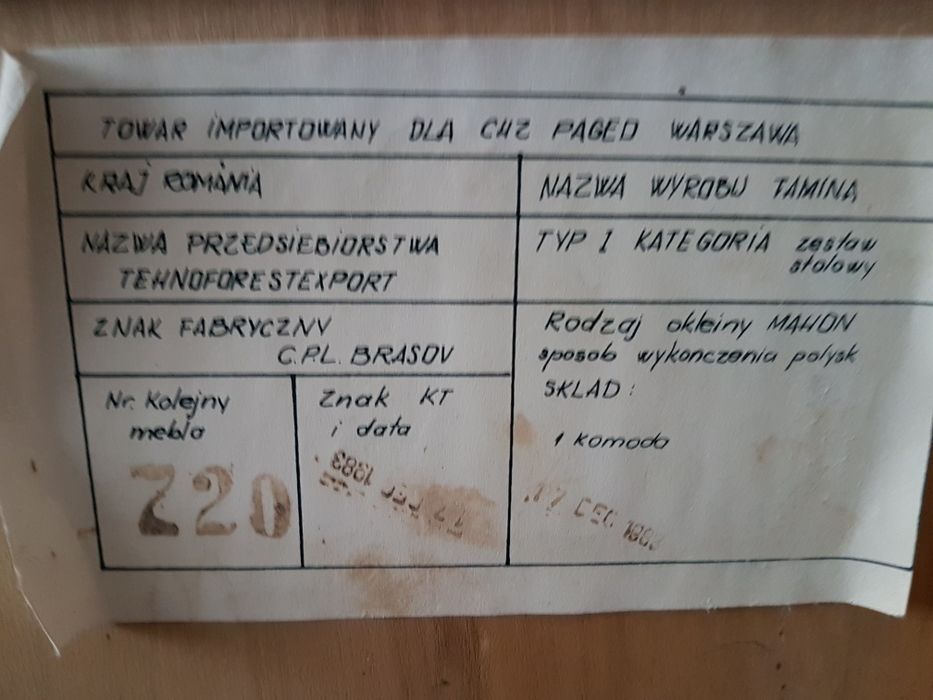 TOWAR IMPORTOWANY DLA CHZ PAGED WARSZAWA
KRAJ ROMÂNIA
NAZWA WYROBU TAMINA
NAZWA PRZEDSIEBIORSTWA
TEHNOFORESTEXPORT
TYP I KATEGORIA zestaw
stolowy
ZNAK FABRYCZNY
C.P.L. BRASOV
Rodzaj okleiny MAHON
sposob wykonczenia polysk
SKLAD:
1 komoda
Nr. Kolejny
mebla
720
Znak KT
i data
17 DEC 1983
17 DEC 1983